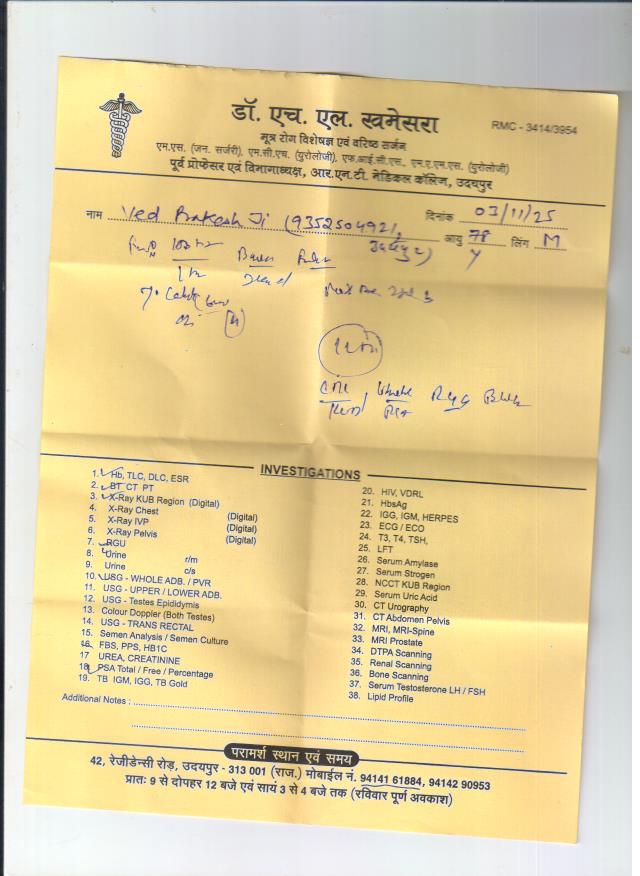 डॉ. एच. एल. खमेसरा
RMC - 3414/3954
मूत्र रोग विशेषज्ञ एवं वरिष्ठ सर्जन
एम.एस. (जन. सर्जरी), एम.सी.एच. (युरोलोजी), एफ.आई.सी.एस., एम.ए.एम.एस. (युरोलोजी)
पूर्व प्रोफेसर एवं विभागाध्यक्ष, आर.एन.टी. मेडिकल कॉलेज, उदयपुर
नाम Ved Prakesh Ji (9352504921, दिनांक 03/11/25
उदयपुर) आयु 78 लिंग M
Y
INVESTIGATIONS
1. Hb, TLC, DLC, ESR
2. BT CT PT
3. X-Ray KUB Region (Digital)
4. X-Ray Chest (Digital)
5. X-Ray IVP (Digital)
6. X-Ray Pelvis (Digital)
7. RGU
8. Urine r/m
9. Urine c/s
10. USG - WHOLE ADB. / PVR
11. USG - UPPER / LOWER ADB.
12. USG - Testes Epididymis
13. Colour Doppler (Both Testes)
14. USG - TRANS RECTAL
15. Semen Analysis / Semen Culture
16. FBS, PPS, HB1C
17 UREA, CREATININE
18. PSA Total / Free / Percentage
19. TB IGM, IGG, TB Gold
20. HIV, VDRL
21. HbsAg
22. IGG, IGM, HERPES
23. ECG / ECO
24. T3, T4, TSH,
25. LFT
26. Serum Amylase
27. Serum Strogen
28. NCCT KUB Region
29. Serum Uric Acid
30. CT Urography
31. CT Abdomen Pelvis
32. MRI, MRI-Spine
33. MRI Prostate
34. DTPA Scanning
35. Renal Scanning
36. Bone Scanning
37. Serum Testosterone LH / FSH
38. Lipid Profile
Additional Notes :
परामर्श स्थान एवं समय
42, रेजीडेन्सी रोड़, उदयपुर - 313 001 (राज.) मोबाईल नं. 94141 61884, 94142 90953
प्रातः 9 से दोपहर 12 बजे एवं सायं 3 से 4 बजे तक (रविवार पूर्ण अवकाश)